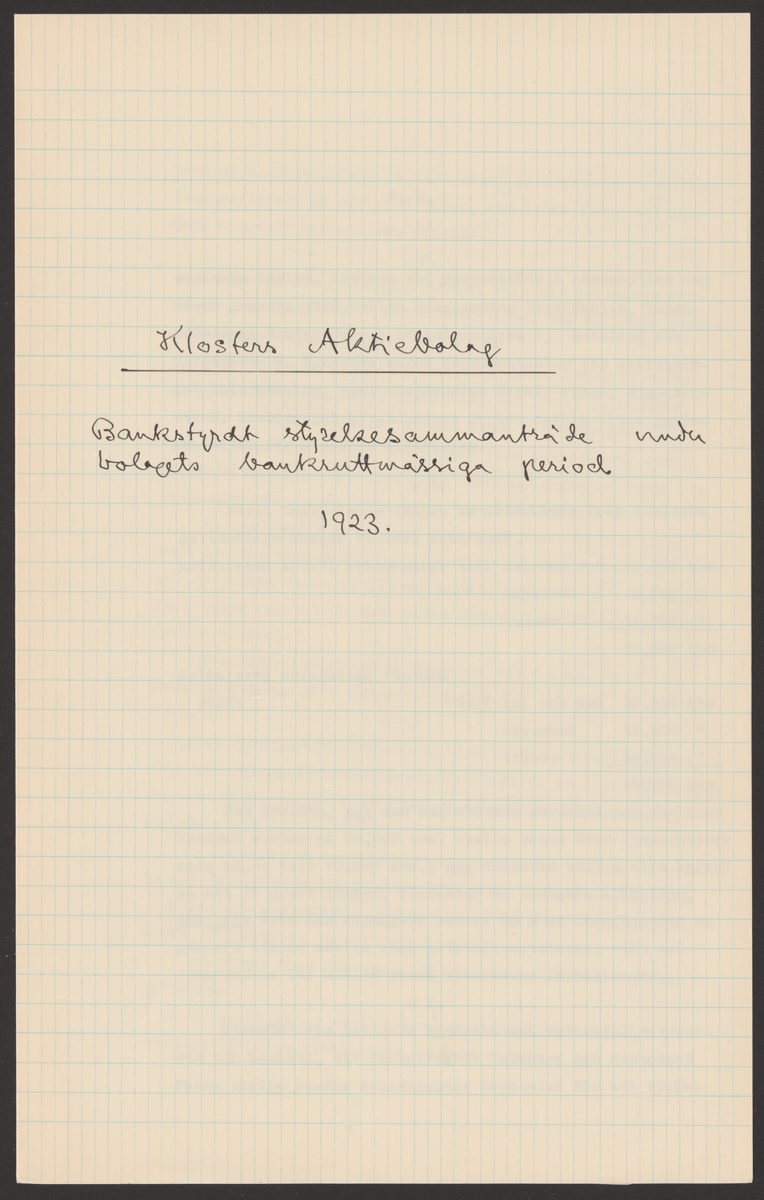 Klosters Aktiebolag
Bankstyrdt styrelsesammanträde under
bolagets bankruttmässiga period
1923.